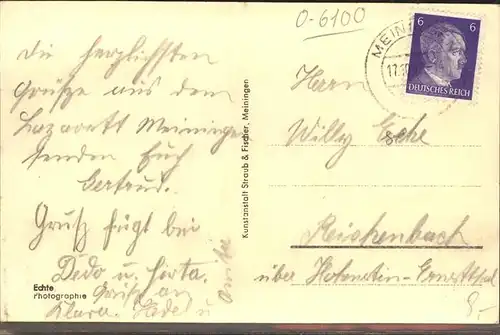 O-6100
Die herzlichsten
Grüsze aus dem
Lazarett Meiningen
senden Euch
Gertrud.
Grusz fügt bei
Dedo u. Herta.
Echte
Photographie
Klara.
Kunstanstalt Straub & Fischer, Meiningen
MEIN
17.10
6 6
DEUTSCHES REICH
Herrn
Willy
Reichenbach
über Hohenstein-Ernstthal
8.-